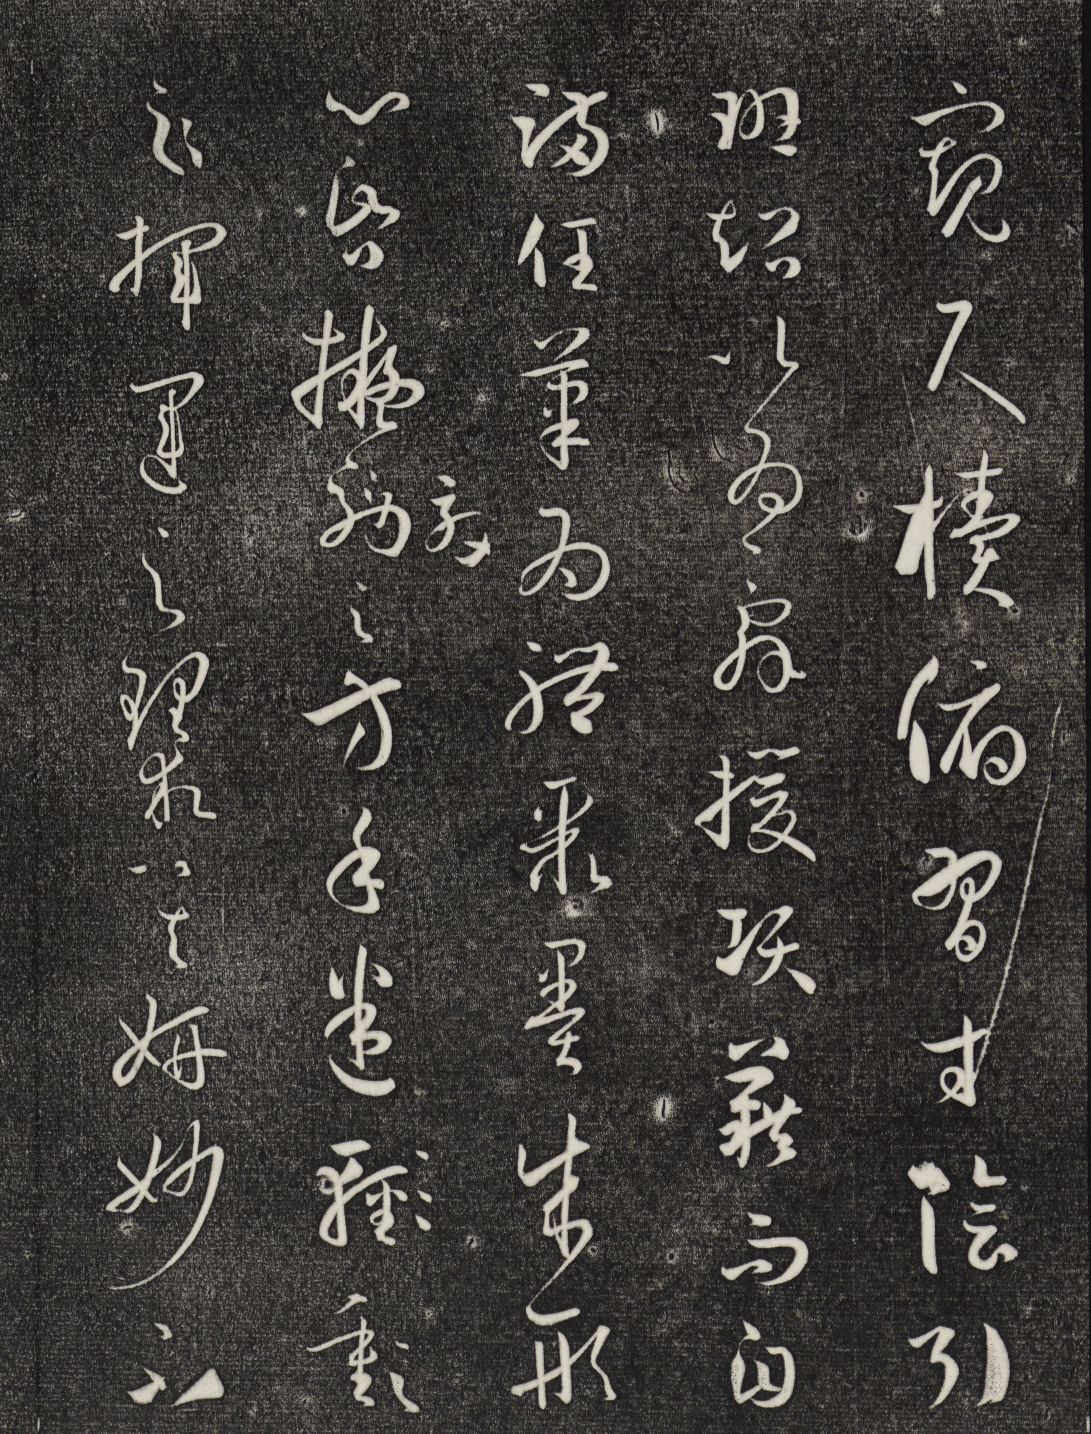 窺尺牘俯習寸陰引
班超以為辭援項籍而自
滿任筆為體聚墨成形
心昏擬効之方手迷輕重
之揮運之理求其妍妙不